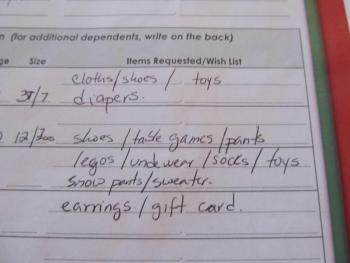 n (for additional dependents, write on the back)
ge Size Items Requested/Wish List
cloths/shoes / toys
diapers.
shoes / table games / pants
/legos / underwear / socks / toys
snow pants / sweater.
earrings / gift card.